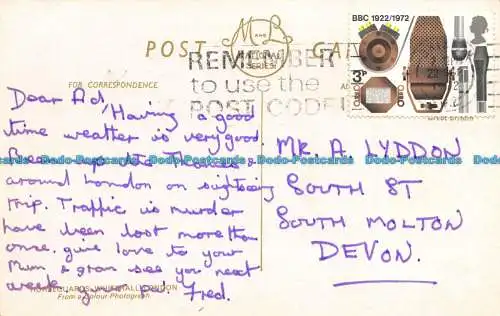 POST CARD
M AND L
NATIONAL
SERIES
REMEMBER
to use the
POST CODE
BBC 1922/1972
3p
FOR CORRESPONDENCE
Dear Ad,
Having a good
time weather is very good
Been up the Thames,
around London on sightseeing
trip. Traffic is murder
have been lost more than
once. give love to your
Mum & gran see you next
week, your pal. Fred.
MR. A. LYDDON
SOUTH ST
SOUTH MOLTON
DEVON.
HORSEGUARDS, WHITEHALL, LONDON
From a Colour Photograph
Dodo-Postcards Dodo-Postcards Dodo-Postcards Dodo-Postcards Dodo-Postcards